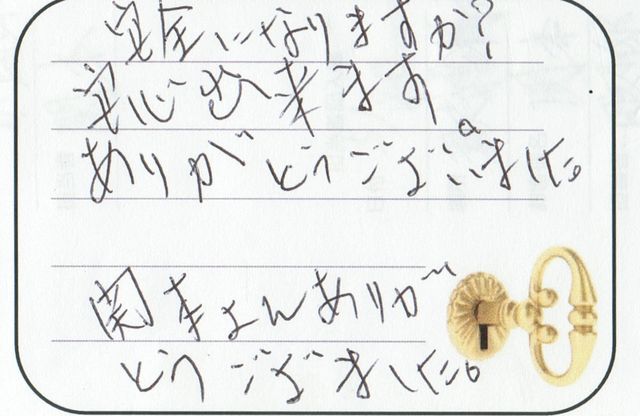 安全になりますか?
安心出来ます
ありがとうございました。
関本さんありが
とうございました。